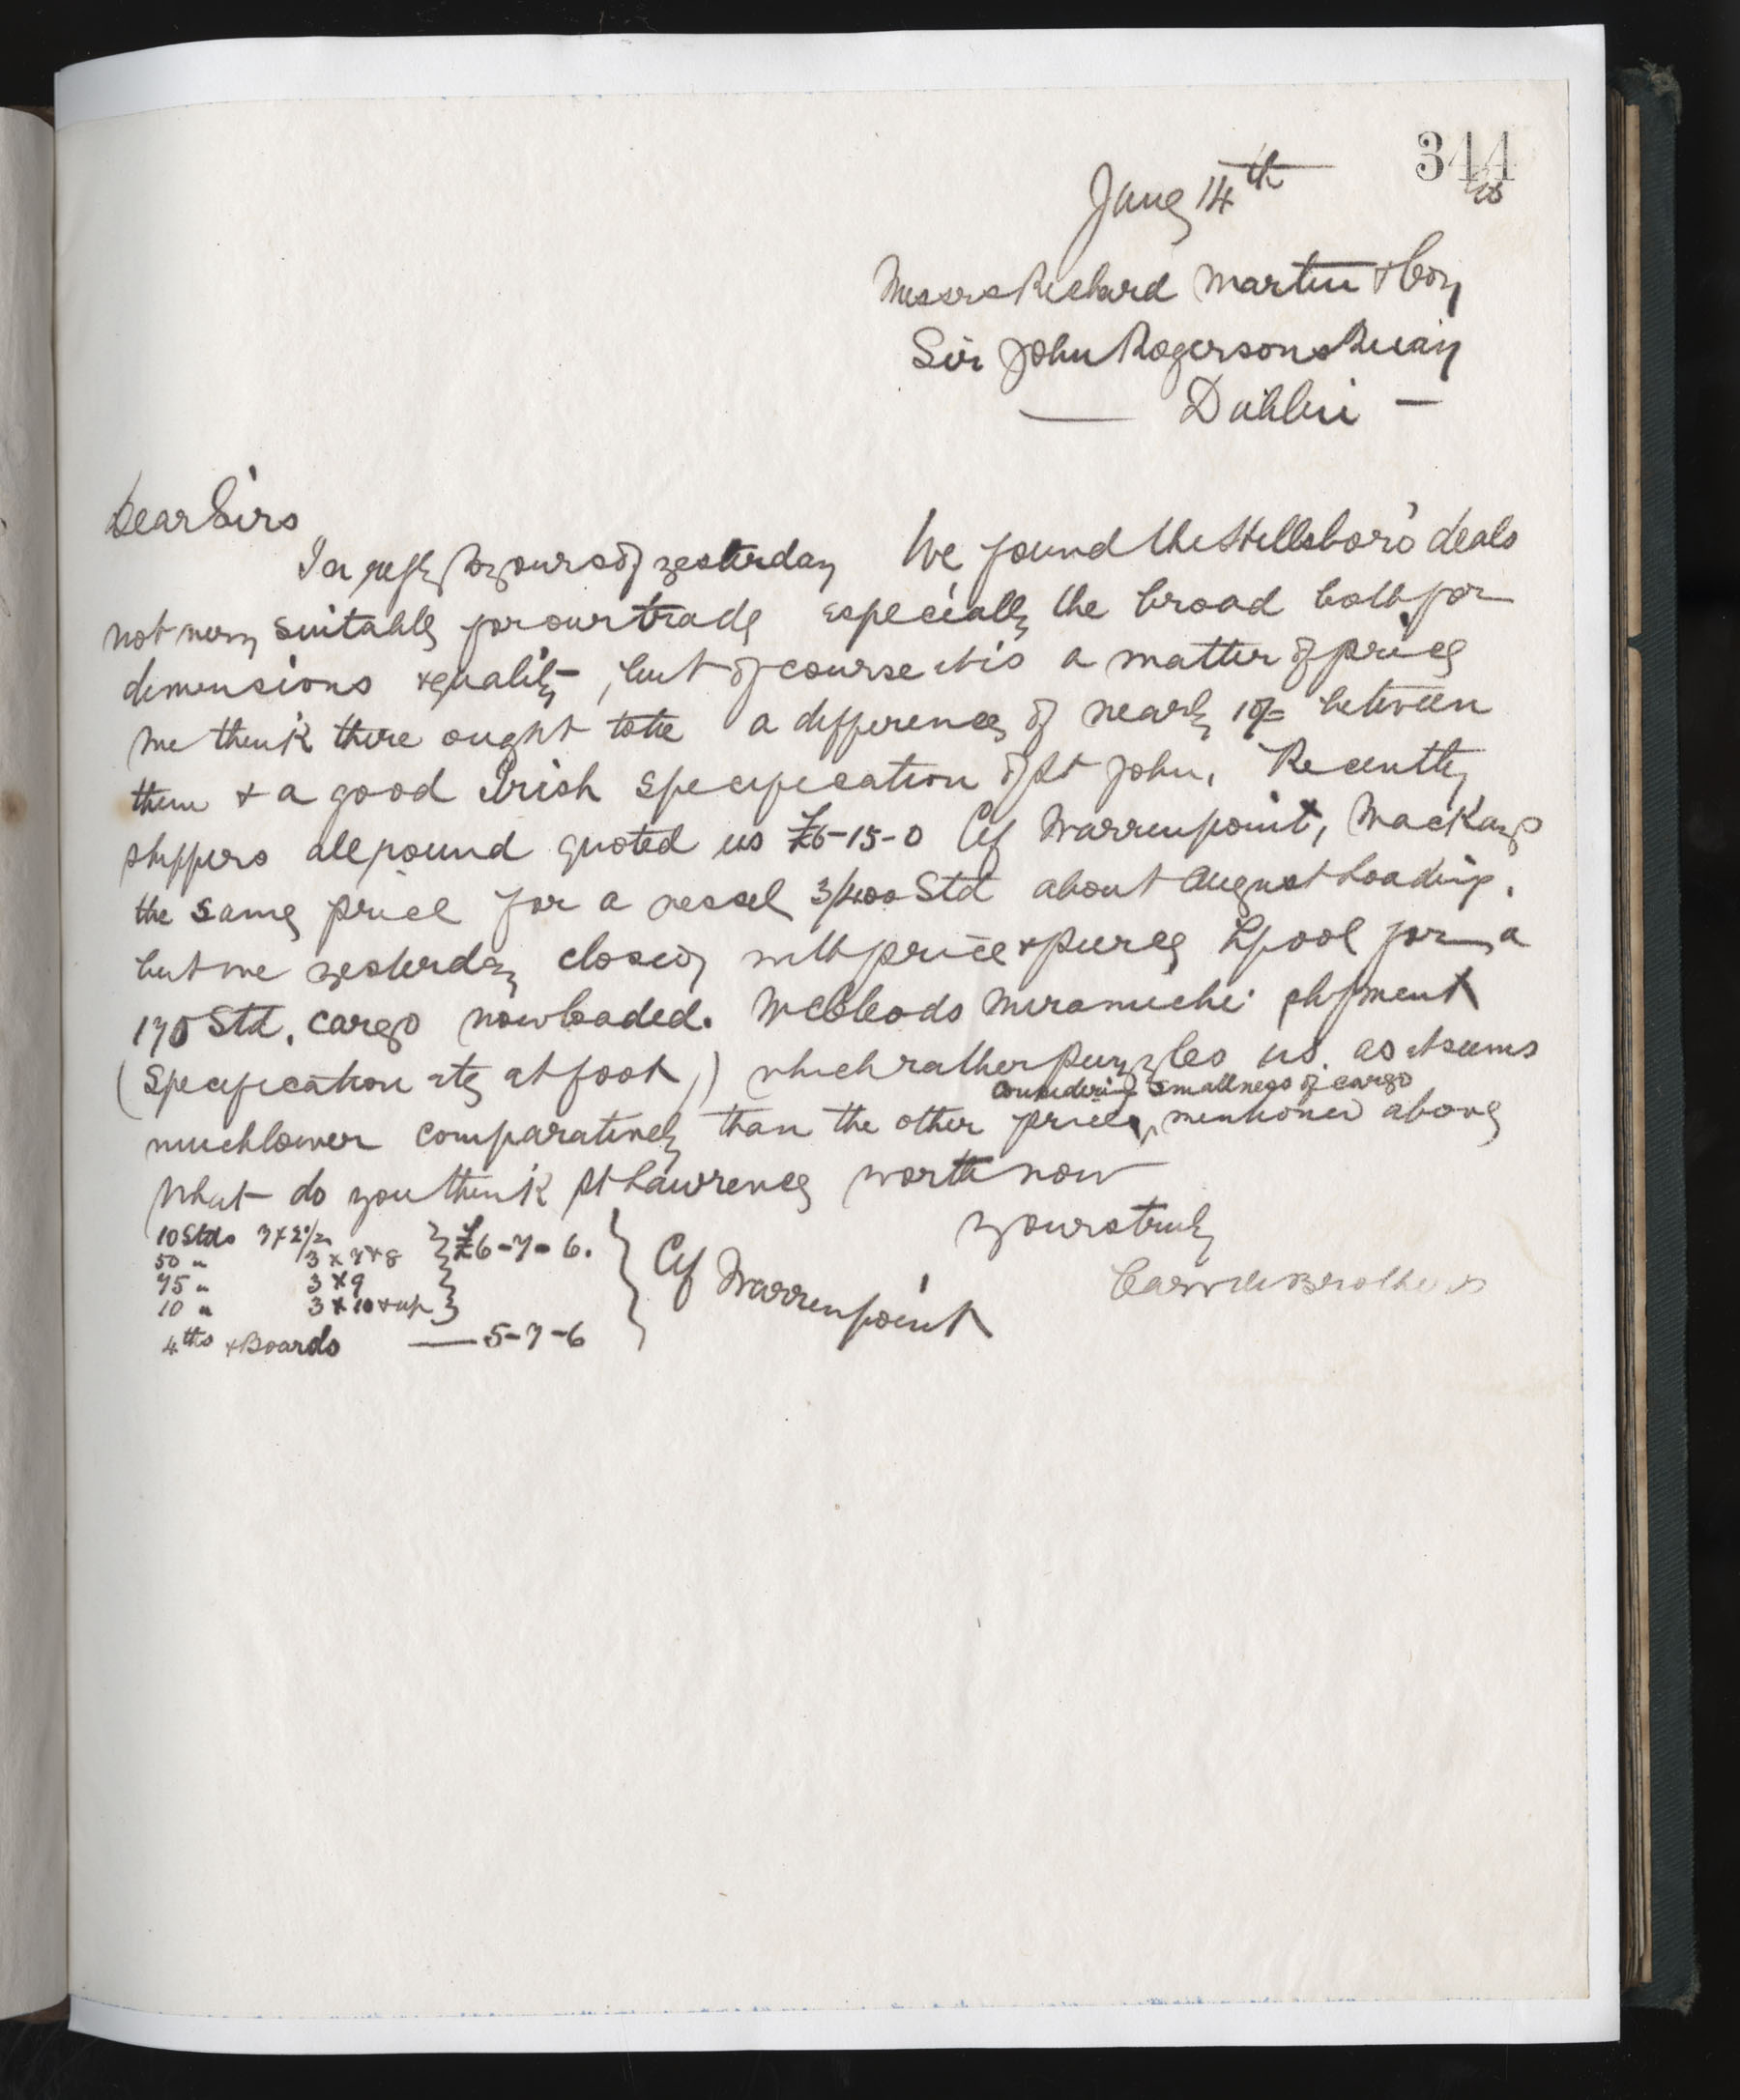 344
Jany 14th
Messrs Richard Martin & Coy
Sir John Rogersons Quay
Dublin
Dear Sirs
In reply to yours of yesterday We found the Hillsboro deals
not very suitable for our trade especially the broad both for
dimensions & quality, but of course it is a matter of price
we think there ought to be a difference of nearly 10/= between
them & a good Irish specification of St John. Recently
shippers all round quoted us £6-15-0 Cif Warrenpoint, Mackays
the same price for a vessel 3/400 Std about August loading.
but we yesterday closed with price & pierce Lpool for a
170 Std. cargo now loaded. McLeods Miramichi shipment
(Specification etc at foot,) which rather puzzles us. as it seems
considering smallness of cargo
much lower comparatively than the other prices, mentioned above
What do you think St Lawrence worth now
Yours truly
Carvill Brothers
10 Stds 3 x 2 1/2
50 " 3 x 7 & 8 £6-7-6.
75 " 3 x 9
10 " 3 x 10 & up
4ths & Boards — 5-7-6
Cif Warrenpoint